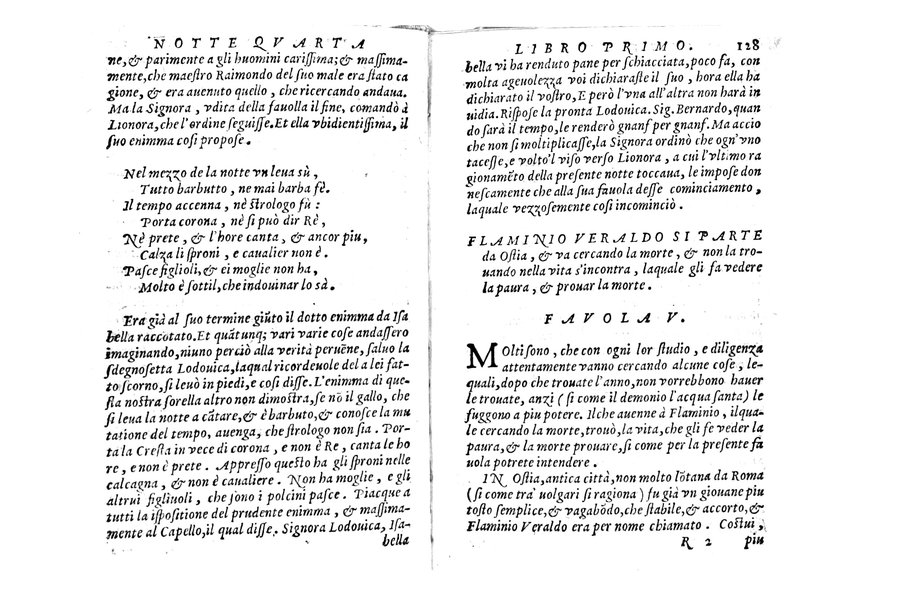 NOTTE QVARTA
ne,& parimente a gli huomini carissima;& massima-
mente,che maestro Raimondo del suo male era stato ca
gione, & era auenuto quello , che ricercando andaua.
Ma la Signora , vdita della fauolla il fine, comandò à
Lionora,che l'ordine seguisse.Et ella vbidientissima, il
suo enimma cosi propose.
Nel mezzo de la notte vn leua sù ,
Tutto barbutto , ne mai barba fè.
Il tempo accenna , nè strologo fù :
Porta corona , nè si può dir Rè ,
Nè prete , & l'hore canta , & ancor piu,
Calza li sproni , e caualier non è .
Pasce figlioli,& ei moglie non ha ,
Molto è sottil,che indouinar lo sà .
Era già al suo termine giũto il dotto enimma da Isa
bella raccotato.Et quãtunq; vari varie cose andassero
imaginando,niuno perciò alla verità peruẽne,saluo la
sdegnosetta Lodouica,laqual ricordeuole del a lei fat-
to scorno,si leuò in piedi,e cosi disse.L'enimma di que-
sta nostra sorella altro non dimostra,se nõ il gallo, che
si leua la notte a cãtare,& è barbuto,& conosce la mu
tatione del tempo, auenga, che strologo non sia . Por-
ta la Cresta in vece di corona , e non è Re , canta le ho
re , e non è prete . Appresso questo ha gli sproni nelle
calcagna , & non è caualiere . Non ha moglie , e gli
altrui figliuoli , che sono i polcini pasce . Piacque a
tutti la ispositione del prudente enimma , & massima-
mente al Capello,il qual disse. Signora Lodouica, Isa-
bella
LIBRO PRIMO. 128
bella vi ha renduto pane per schiacciata,poco fa, con
molta ageuolezza voi dichiaraste il suo , hora ella ha
dichiarato il vostro,E però l'vna all'altra non harà in
uidia.Rispose la pronta Lodouica.Sig.Bernardo,quan
do sarà il tempo,le renderò gnanf per gnanf.Ma accio
che non si moltiplicasse,la Signora ordinò che ogn'vno
tacesse,e volto'l viso verso Lionora , a cui l'vltimo ra
gionamẽto della presente notte toccaua, le impose don
nescamente che alla sua fauola desse cominciamento ,
laquale vezzosemente cosi incominciò .
FLAMINIO VERALDO SI PARTE
da Ostia , & va cercando la morte , & non la tro-
uando nella vita s'incontra , laquale gli fa vedere
la paura , & prouar la morte .
FAVOLA V.
MOlti sono , che con ogni lor studio , e diligenza
attentamente vanno cercando alcune cose , le-
quali,dopo che trouate l'anno,non vorrebbono hauer
le trouate, anzi ( si come il demonio l'acqua santa) le
fuggono a piu potere. Ilche auenne à Flaminio , ilqua-
le cercando la morte,trouò,la vita,che gli fe veder la
paura,& la morte prouare,si come per la presente fa
uola potrete intendere .
IN Ostia,antica città,non molto lõtana da Roma
(si come tra' uolgari si ragiona) fu già vn giouane piu
tosto semplice,& vagabõdo,che stabile,& accorto,&
Flaminio Veraldo era per nome chiamato . Costui ,
R 2 piu